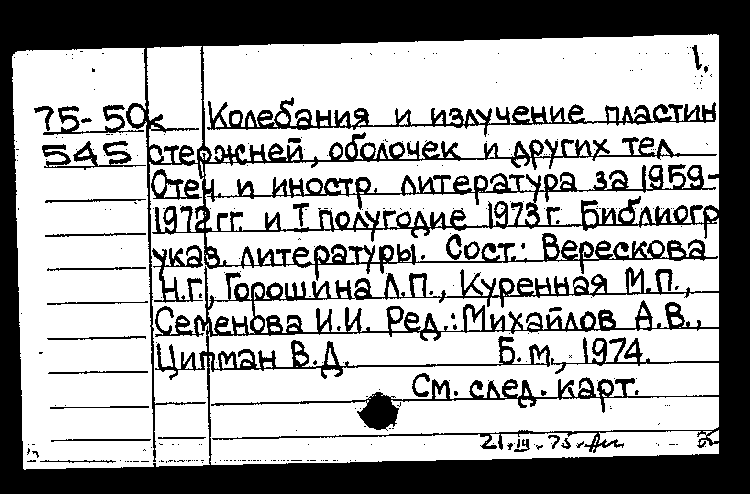 1.
75-50к Колебания и излучение пластин
545 стержней, оболочек и других тел.
Отеч. и иностр. литература за 1959-
1972 гг. и I полугодие 1973 г. Библиогр
указ. литературы. Сост.: Верескова
Н.Г., Горошина Л.П., Куренная М.П.,
Семенова И.И. Ред.: Михайлов А.В.,
Ципман В.Д. Б.м., 1974.
См. след. карт.
21.III.75.